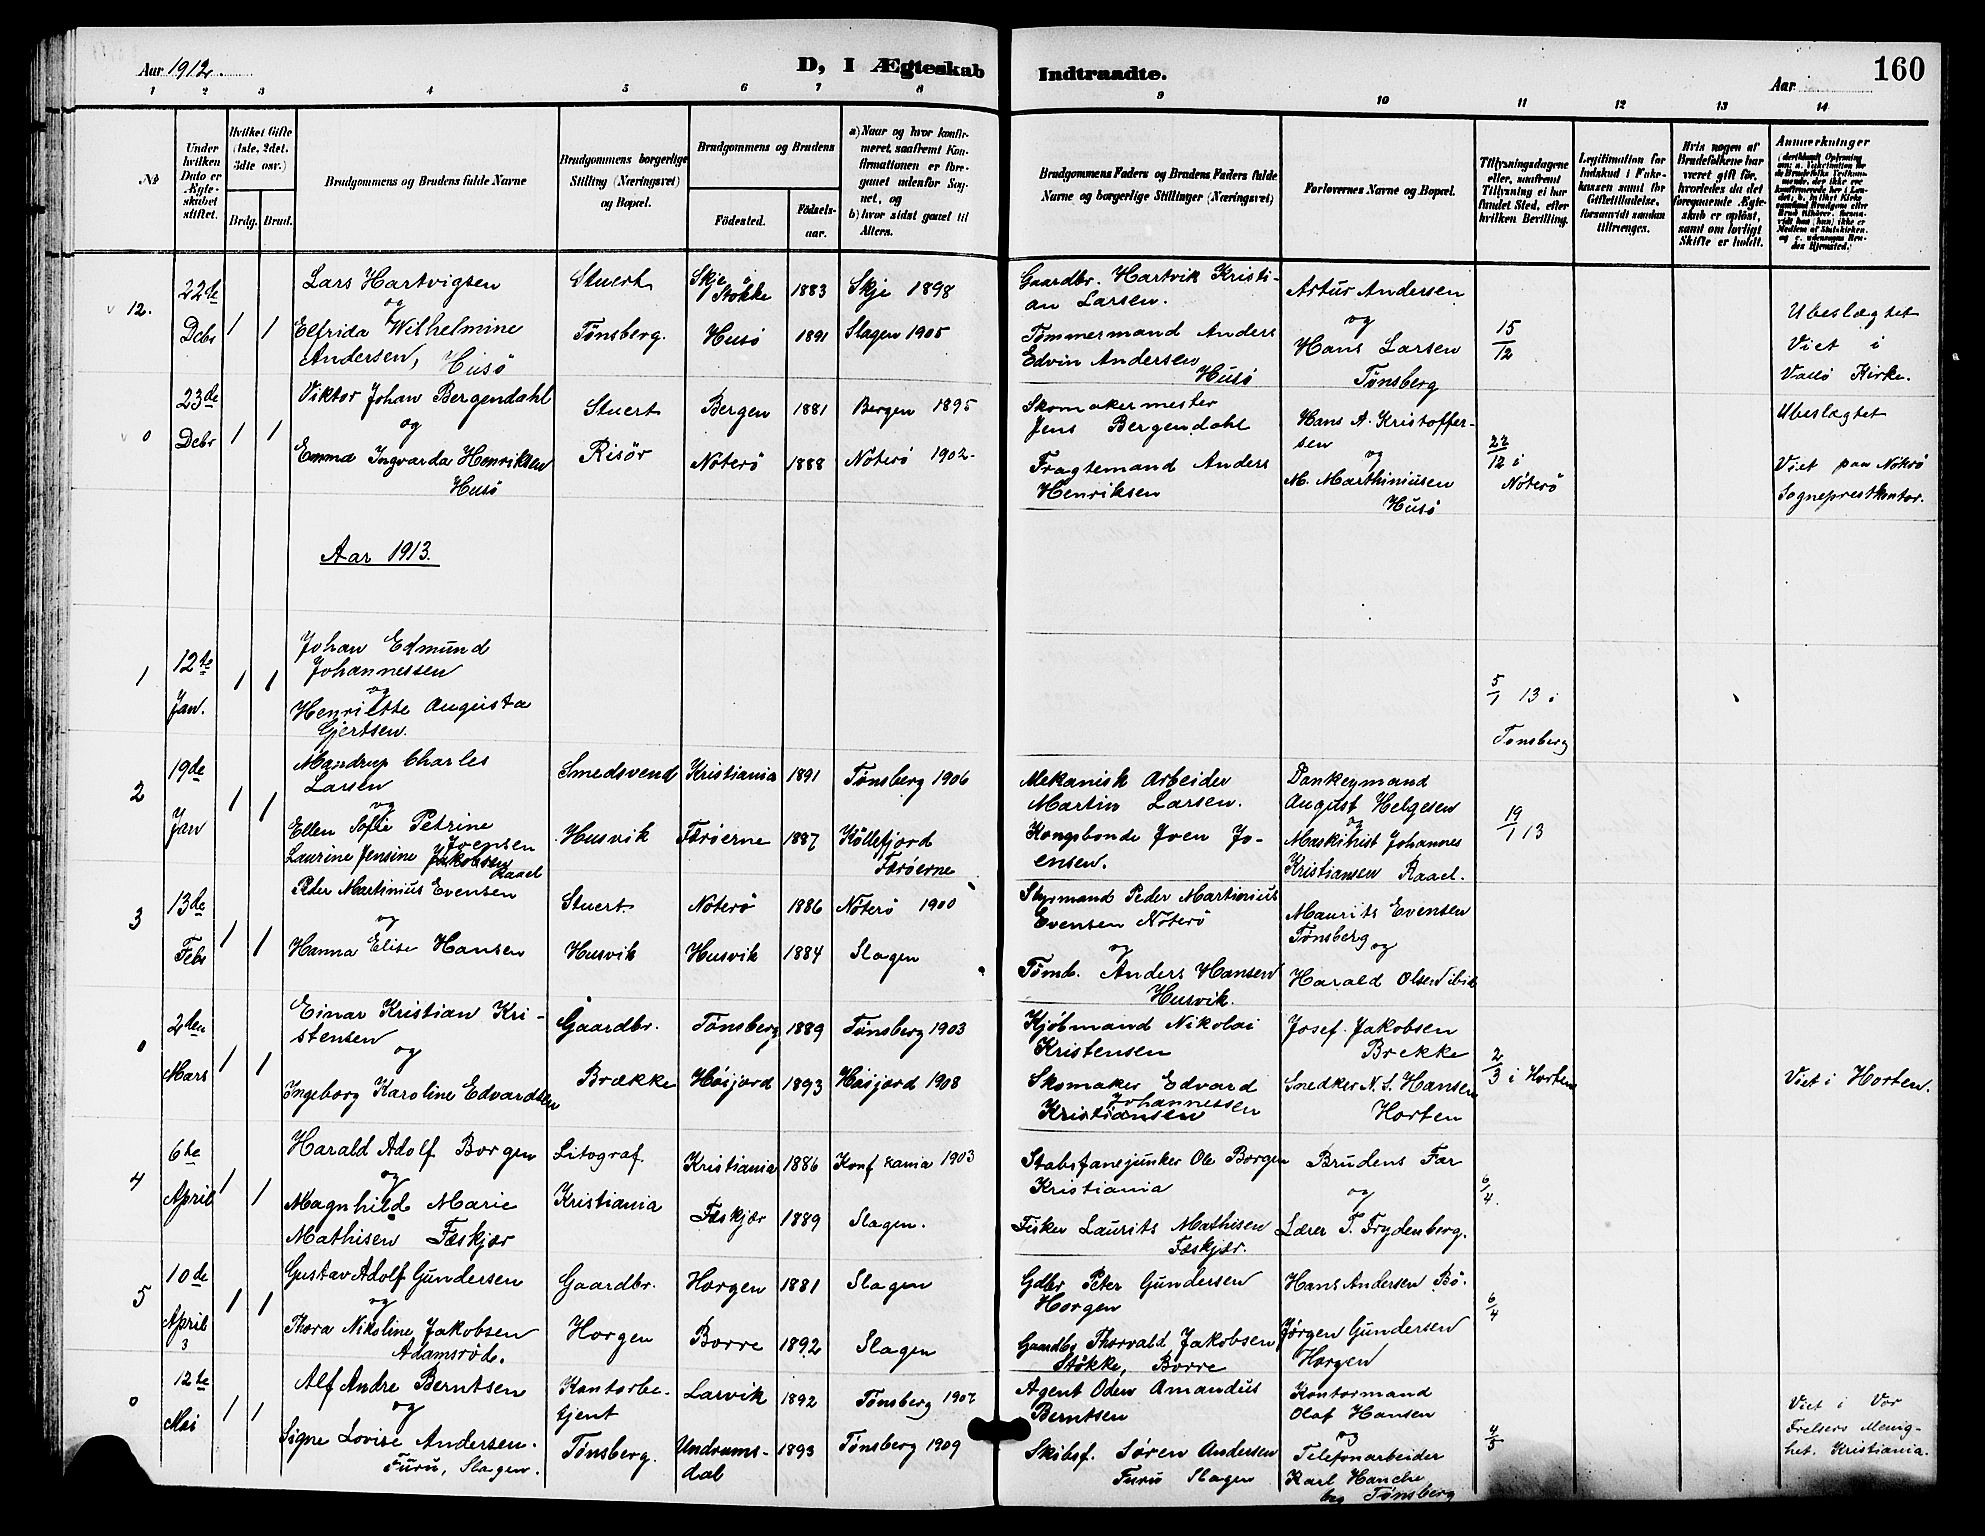 Aar 1912.
D, I Ægteskab
Indtraadte.
Aar
160
1 2 3 4 5 6 7 8 9 10 11 12 13 14
No
Under hvilken Dato er Ægteskabet stiftet.
Hvilket Gifte (1ste, 2det, 3die osv.)
Brdg. Brud.
Brudgommens og Brudens fulde Navne
Brudgommens borgerlige Stilling (Næringsvei) og Bopæl.
Brudgommens og Brudens
Fødested.
Fødselsaar.
a) Naar og hvor konfirmeret, saafremt Konfirmationen er foregaaet udenfor Sognet, og
b) hvor sidst gaaet til Alters.
Brudgommens Faders og Brudens Faders fulde Navne og borgerlige Stillinger (Næringsvei)
Forlovernes Navne og Bopæl.
Tillysningsdagene eller, saafremt Tillysning ei har fundet Sted, efter hvilken Bevilling.
Legitimation for Indskud i Enkekassen samt for Giftetilladelse, forsaavidt saadan tiltrænges.
Hvis nogen af Brudefolkene har været gift før, hvorledes da det foregaaende Ægteskab er opløst, samt om lovligt Skifte er holdt.
Anmærkninger
12.
22de
Debr
1 1
Lars Hartvigsen
og
Elfrida Wilhelmine
Andersen, Husö
Stuert
Tønsberg.
Skje
Stokke
1883
Skje 1898
Husö
1891
Slagen 1905
Gaardbr. Hartvik Kristi-
an Larsen.
Tømmermand Anders
Edvin Andersen
Husö
Artur Andersen
og
Hans Larsen
Tønsberg
15/12
Ubeslægtet
Viet i
Vallö Kirke.
0
23de
Debr
1 1
Viktor Johan Bergendahl
og
Emma Ingvarda Henriksen
Husö
Stuert
Risör
Bergen
1881
Bergen 1895
Nöterö
1888
Nöterö 1902.
Skomakermester
Jens Bergendahl
Fragtemand Anders
Henriksen
Hans A. Kristoffer-
sen
og
M. Marthiniusen
Husö
22/12 i
Nöterö
Ubeslægtet
Viet paa Nöterö
Sogneprestkontor.
Aar 1913.
1
12te
Jan.
1 1
Johan Edmund
Johannessen
og
Henriette Augusta
Gjertsen.
5/1 13 i
Tønsberg
2
19de
Jan
1 1
Mandrup Charles
Larsen
og
Ellen Sofie Petrine
Joensen
Laurine Jensine Jakobsen
Raael
Smedsvend
Husvik
Kristiania
1891
Tønsberg 1906
Færöerne
1887
Kollefjord
Færöerne
Mekanisk Arbeider
Martin Larsen.
Kongsbonde Joen Jo-
ensen.
Donkeymand
August Helgesen
og
Maskinist Johannes
Kristiansen Raael.
19/1 13
3
13de
Febr
1 1
Peder Martinius Evensen
og
Hanna Elise Hansen
Stuert
Husvik
Nöterö
1886
Nöterö 1900
Husvik
1884
Slagen
Styrmand Peder Martinius
Evensen Nöterö
og
Tömb. Anders Hansen
Husvik.
Maurits Evensen
Tønsberg og
Harald Olsen
0
2den
Mars
1 1
Einar Kristian Kri-
stensen
og
Ingeborg Karoline Edvardsen
Gaardbr.
Brække
Tønsberg
1889
Tønsberg 1903
Höijord
1893
Höijord 1908
Kjöbmand Nikolai
Kristensen
Skomaker Edvard
Johannessen
Kristiansen
Josef Jakobsen
Brekke
Snedker N. S. Hansen
Horten
2/3 i Horten
Viet i Horten.
4
6te
April
1 1
Harald Adolf Borgen
og
Magnhild Marie
Mathisen Fæskjær
Litograf
Kristiania
Kristiania
1886
Konf 1903
Fæskjær
1889
Slagen.
Stabsfanejunker Ole Borgen
Kristiania
Fisker Laurits Mathisen
Fæskjær.
Brudens Far
og
Lærer T. Frydenberg.
6/4.
5
10de
April
3
1 1
Gustav Adolf Gundersen
og
Thora Nikoline Jakobsen
Adamsröd.
Gaardbr.
Horgen
Horgen
1881
Slagen
Borre
1892
Slagen
Gdbr Peter Gundersen
Horgen
Gaardbr Thorvald Jakobsen
Stökke, Borre
Hans Andersen Bö.
Jörgen Gundersen
Horgen
6/4
0
12te
Mai
1 1
Alf Andre Berntsen
og
Signe Lovise Andersen.
Furu, Slagen.
Kontorbe-
tjent
Tønsberg.
Larvik
1892
Tønsberg 1907
Undrums-
dal
1893
Tønsberg 1909
Agent Oden Amandus
Berntsen
Skibsf. Sören Andersen
Furu Slagen
Kontormand
Olaf Hansen
og
Telefonarbeider
Karl Hanche
Tønsberg
4/5
Viet i Vor
Frelsers Menig-
het. Kristiania.